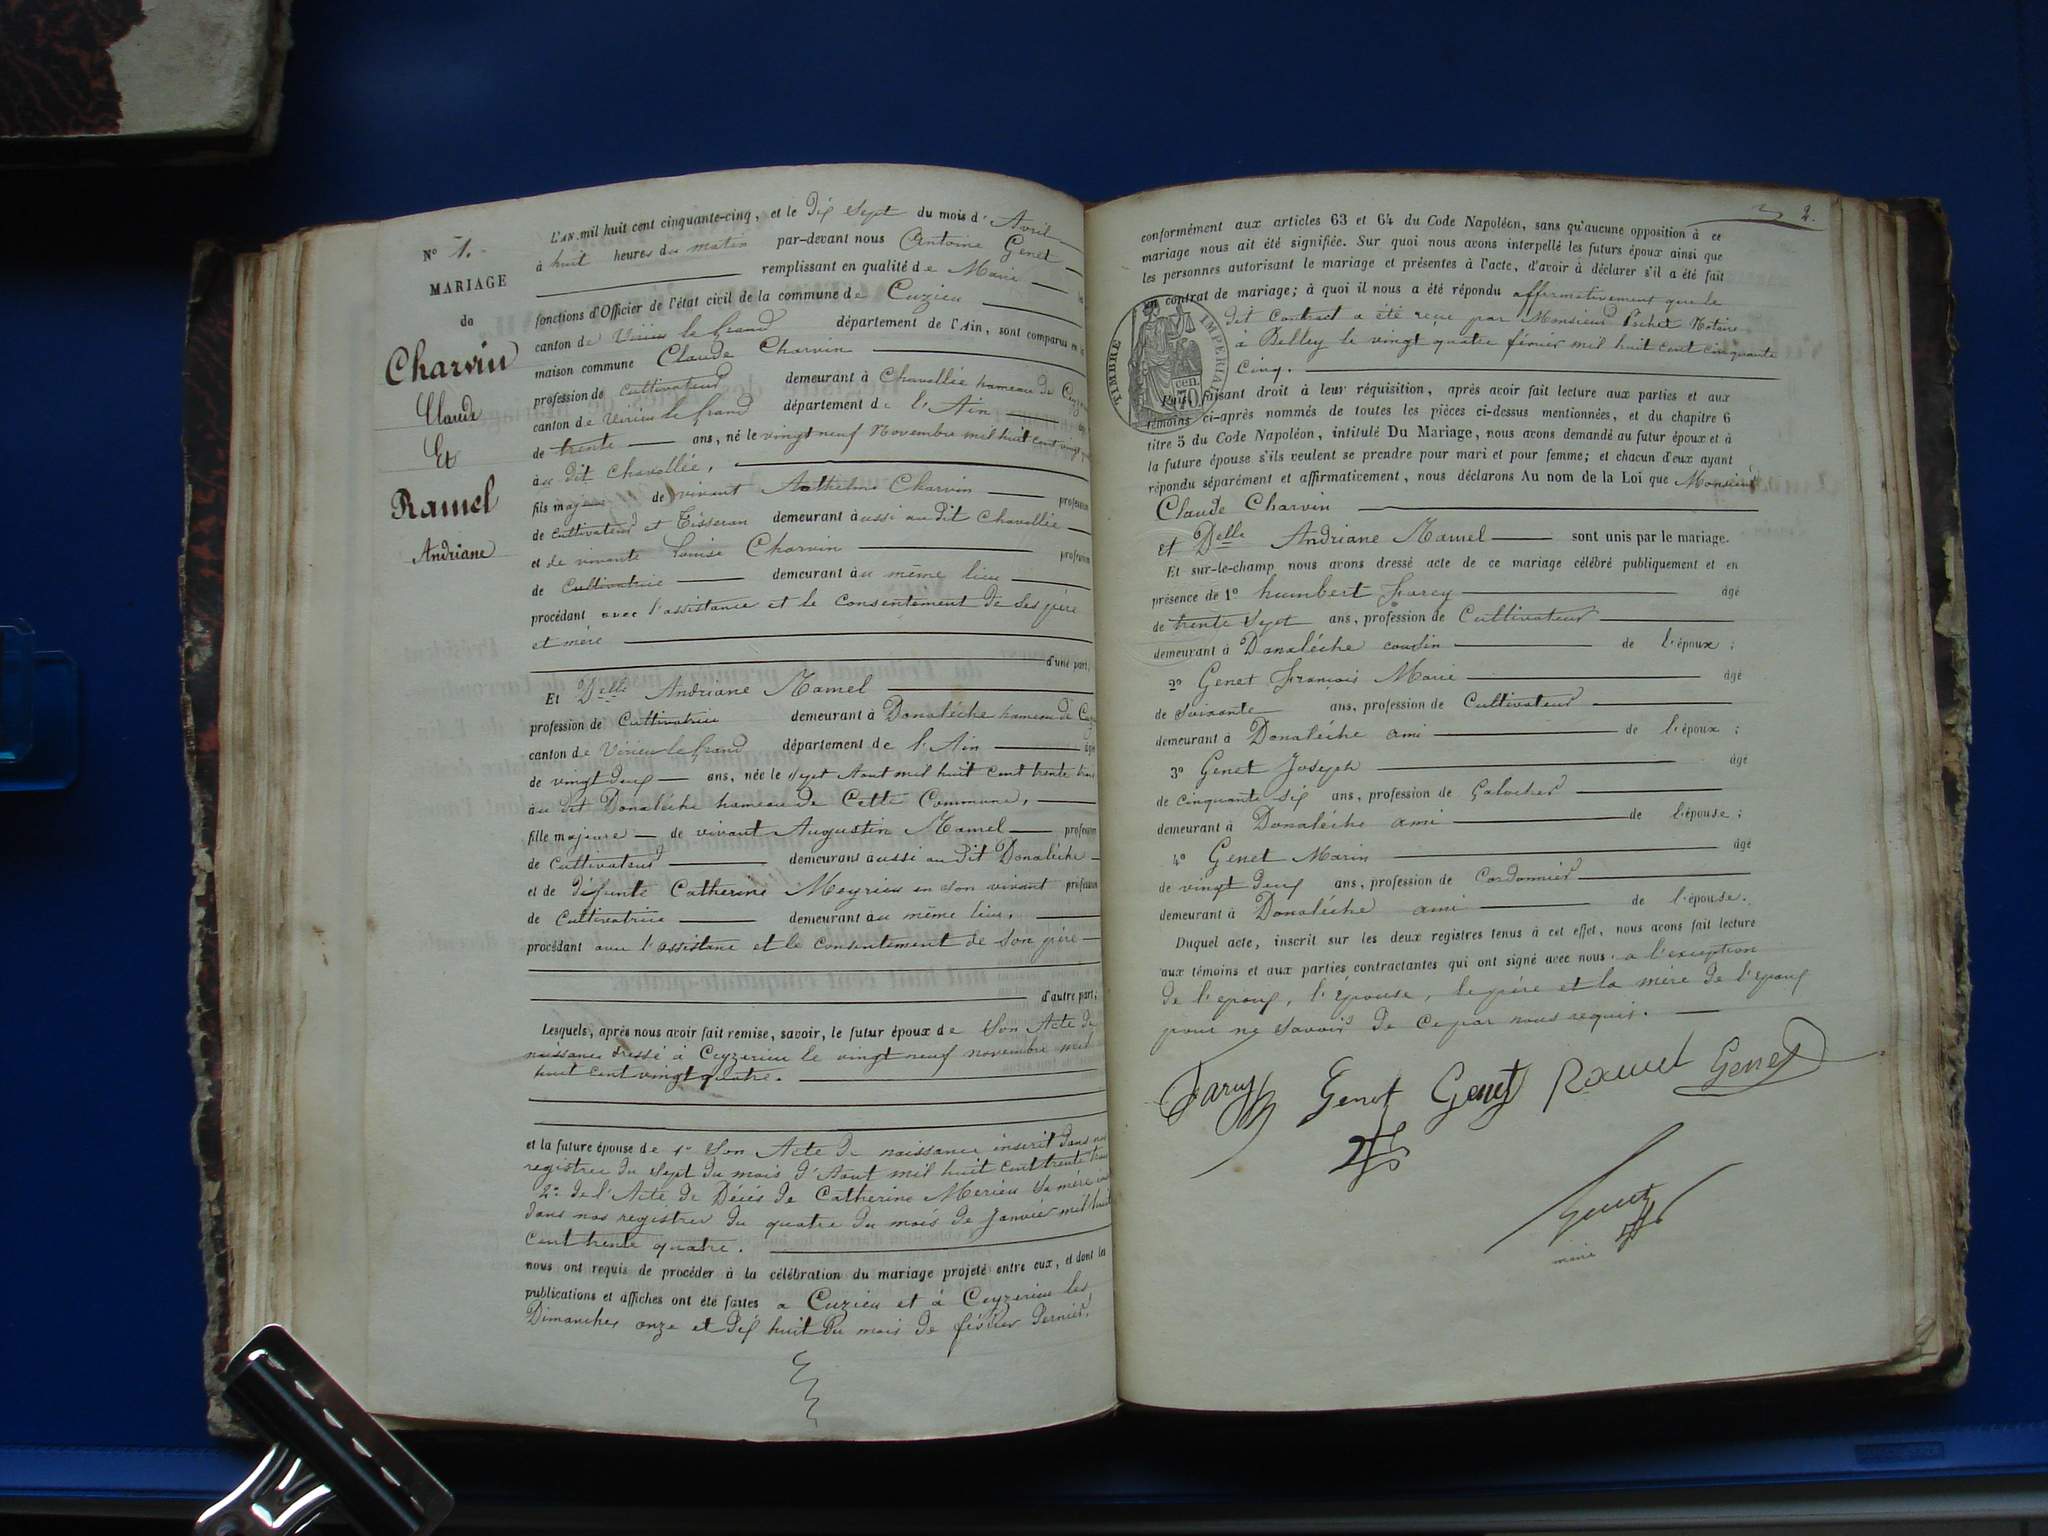 N° 1.
MARIAGE
de
Charvin
Claude
Et
Ramel
Andriane
L'AN mil huit cent cinquante-cinq, et le Dix Sept du mois d'Avril
à huit heures du matin par-devant nous Antoine Genet
remplissant en qualité de Maire les
fonctions d'Officier de l'état civil de la commune de Cuzieu
canton de Virieu le Grand département de l'Ain, sont comparus en la
maison commune Claude Charvin
profession de Cultivateur demeurant à Chavollée hameau de
canton de Virieu le Grand département de l'Ain
de trente ans, né le vingt neuf Novembre mil huit cent vingt
à au dit Chavollée,
fils majeur de vivant Anthelme Charvin profession
de Cultivateur et Tisseran demeurant à aussi au dit Chavollée
et de vivante Louise Charvin profession
de Cultivatrice demeurant à au même lieu
procédant avec l'assistance et le consentement de Ses père
et mère
d'une part;
Et Delle Andriane Ramel
profession de Cultivatrice demeurant à Donalèche hameau de
canton de Virieu le Grand département de l'Ain âgée
de vingt deux ans, née le Sept Aout mil huit cent trente trois
à au dit Donalèche hameau de Cette Commune,
fille majeure de vivant Augustin Ramel profession
de Cultivateur demeurant aussi au dit Donalèche
et de défunte Catherine Meyrieu en son vivant profession
de Cultivatrice demeurant à au même lieu,
procédant avec l'assistance et le consentement de Son père
d'autre part;
Lesquels, après nous avoir fait remise, savoir, le futur époux de Son Acte de
naissance dressé à Ceyzerieu le vingt neuf novembre mil
huit cent vingt quatre.
et la future épouse de 1° Son Acte de naissance inscrit dans nos
registres du Sept du mois d'Aout mil huit cent trente trois
2° de l'Acte de Décès de Catherine Merieu Sa mère
dans nos registres du quatre du mois de Janvier mil huit
cent trente quatre.
nous ont requis de procéder à la célébration du mariage projeté entre eux, et dont les
publications et affiches ont été faites a Cuzieu et à Ceyzerieu les
Dimanches onze et dix huit du mois de février dernier,
2.
conformément aux articles 63 et 64 du Code Napoléon, sans qu'aucune opposition à ce
mariage nous ait été signifiée. Sur quoi nous avons interpellé les futurs époux ainsi que
les personnes autorisant le mariage et présentes à l'acte, d'avoir à déclarer s'il a été fait
un contrat de mariage; à quoi il nous a été répondu affirmativement que le
dit Contract a été reçu par Monsieur Notaire
a Belley le vingt quatre février mil huit cent cinquante
Cinq.
TIMBRE IMPERIAL
70 cen.
Puis faisant droit à leur réquisition, après avoir fait lecture aux parties et aux
témoins ci-après nommés de toutes les pièces ci-dessus mentionnées, et du chapitre 6
titre 5 du Code Napoléon, intitulé Du Mariage, nous avons demandé au futur époux et à
la future épouse s'ils veulent se prendre pour mari et pour femme; et chacun d'eux ayant
répondu séparément et affirmativement, nous déclarons Au nom de la Loi que Monsieur
Claude Charvin
Et Delle Andriane Ramel sont unis par le mariage.
Et sur-le-champ nous avons dressé acte de ce mariage célébré publiquement et en
présence de 1° humbert Farcy âgé
de trente Sept ans, profession de Cultivateur
demeurant à Donalèche cousin de l'époux;
2° Genet François Marie âgé
de Soixante ans, profession de Cultivateur
demeurant à Donalèche ami de l'époux;
3° Genet Joseph âgé
de Cinquante Six ans, profession de Galocher
demeurant à Donalèche ami de l'épouse;
4° Genet Marin âgé
de vingt deux ans, profession de Cordonnier
demeurant à Donalèche ami de l'épouse.
Duquel acte, inscrit sur les deux registres tenus à cet effet, nous avons fait lecture
aux témoins et aux parties contractantes qui ont signé avec nous. a l'exception
de l'époux, l'épouse, le père et la mère de l'époux
pour ne Savoir de ce par nous requis.
Farcy Genet Genet Ramel Genet
Genet
maire